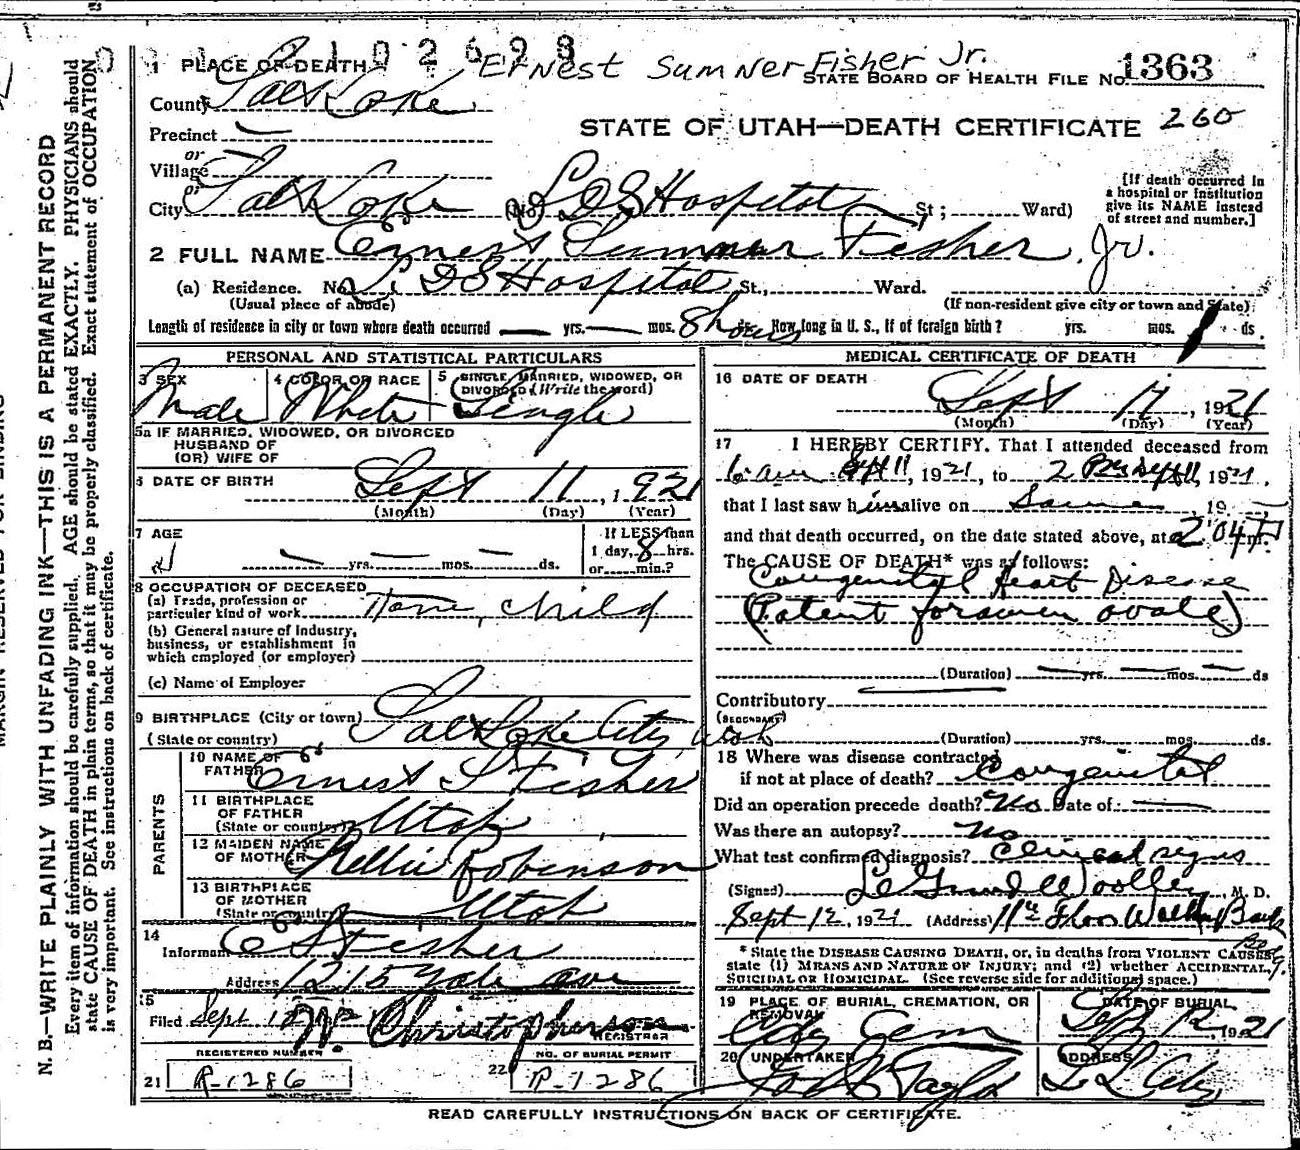 102698
1 PLACE OF DEATH Ernest Sumner Fisher Jr. STATE BOARD OF HEALTH FILE No. 1363
County Salt Lake
STATE OF UTAH—DEATH CERTIFICATE 260
Precinct —
or
Village —
or
City Salt Lake (No. LDS Hospital St; Ward)
[If death occurred in
a hospital or institution
give its NAME instead
of street and number.]
2 FULL NAME Ernest Sumner Fisher, Jr.
(a) Residence. No. L.D.S Hospital St., Ward.
(Usual place of abode) (If non-resident give city or town and State)
Length of residence in city or town where death occurred — yrs. — mos. 8 hours ds. How long in U. S., if of foreign birth? yrs. mos. ds.
PERSONAL AND STATISTICAL PARTICULARS
3 SEX 4 COLOR OR RACE 5 SINGLE, MARRIED, WIDOWED, OR
DIVORCED (Write the word)
Male White Single
5a IF MARRIED, WIDOWED, OR DIVORCED
HUSBAND OF
(OR) WIFE OF
6 DATE OF BIRTH Sept 11, 1921
(Month) (Day) (Year)
7 AGE — yrs. — mos. — ds.
If LESS than
1 day, 8 hrs.
or min.?
8 OCCUPATION OF DECEASED
(a) Trade, profession or
particular kind of work None, child
(b) General nature of Industry,
business, or establishment in
which employed (or employer)
(c) Name of Employer
9 BIRTHPLACE (City or town) Salt Lake City, Utah
(State or country)
PARENTS
10 NAME OF
FATHER Ernest S Fisher
11 BIRTHPLACE
OF FATHER
(State or country) Utah
12 MAIDEN NAME
OF MOTHER Nellie Robinson
13 BIRTHPLACE
OF MOTHER
(State or country) Utah
14
Informant E S Fisher
Address 1215 Yale ave
15
Filed Sept 12 W. Christopherson
REGISTRAR
REGISTERED NUMBER NO. OF BURIAL PERMIT
21 R-1286 22 R-1286
MEDICAL CERTIFICATE OF DEATH
16 DATE OF DEATH
Sept 11, 1921
(Month) (Day) (Year)
17 I HEREBY CERTIFY, That I attended deceased from
6 am Sept 11, 1921, to 2 PM Sept 11, 1921.
that I last saw him alive on Same 19 —
and that death occurred, on the date stated above, at 2:04 P m.
The CAUSE OF DEATH* was as follows:
Congenital Heart Disease
(Patent foramen ovale)
(Duration) — yrs. — mos. — ds
Contributory —
(SECONDARY)
(Duration) yrs. mos. ds.
18 Where was disease contracted
if not at place of death? Congenital
Did an operation precede death? No Date of: —
Was there an autopsy? No
What test confirmed diagnosis? Clinical signs
(Signed) LeGrand Woolley, M. D.
Sept 12, 1921 (Address) 11th Floor Walker Bank
Bldg.
* State the DISEASE CAUSING DEATH, or, in deaths from VIOLENT CAUSES,
state (1) MEANS AND NATURE OF INJURY; and (2) whether ACCIDENTAL,
SUICIDAL OR HOMICIDAL. (See reverse side for additional space.)
19 PLACE OF BURIAL, CREMATION, OR
REMOVAL
DATE OF BURIAL
City Cem Sept 12, 1921
20 UNDERTAKER ADDRESS
Taylor S L City
READ CAREFULLY INSTRUCTIONS ON BACK OF CERTIFICATE.
N. B.—WRITE PLAINLY WITH UNFADING INK—THIS IS A PERMANENT RECORD
Every item of information should be carefully supplied. AGE should be stated EXACTLY. PHYSICIANS should
state CAUSE OF DEATH in plain terms, so that it may be properly classified. Exact statement of OCCUPATION
is very important. See instructions on back of certificate.
MARGIN RESERVED FOR BINDING